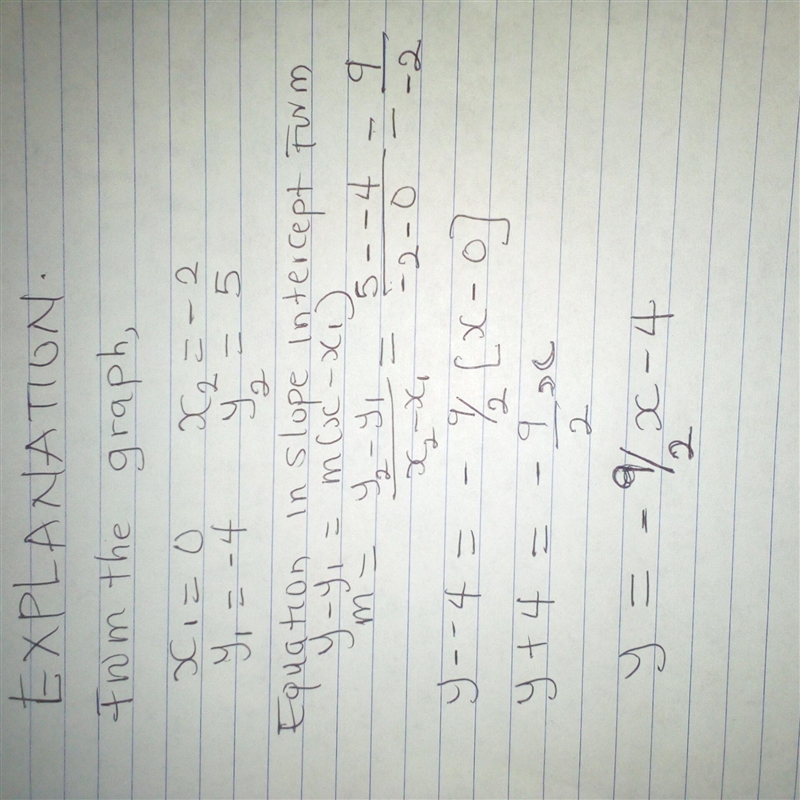 EXPLANATION.
From the graph,
x₁ = 0 x₂ = -2
y₁ = -4 y₂ = 5
Equation in slope intercept Form
y - y₁ = m(x - x₁)
m = y₂ - y₁ / x₂ - x₁ = 5 - -4 / -2 - 0 = 9 / -2
y - -4 = - 9/2 [x - 0]
y + 4 = - 9/2 x
y = - 9/2 x - 4